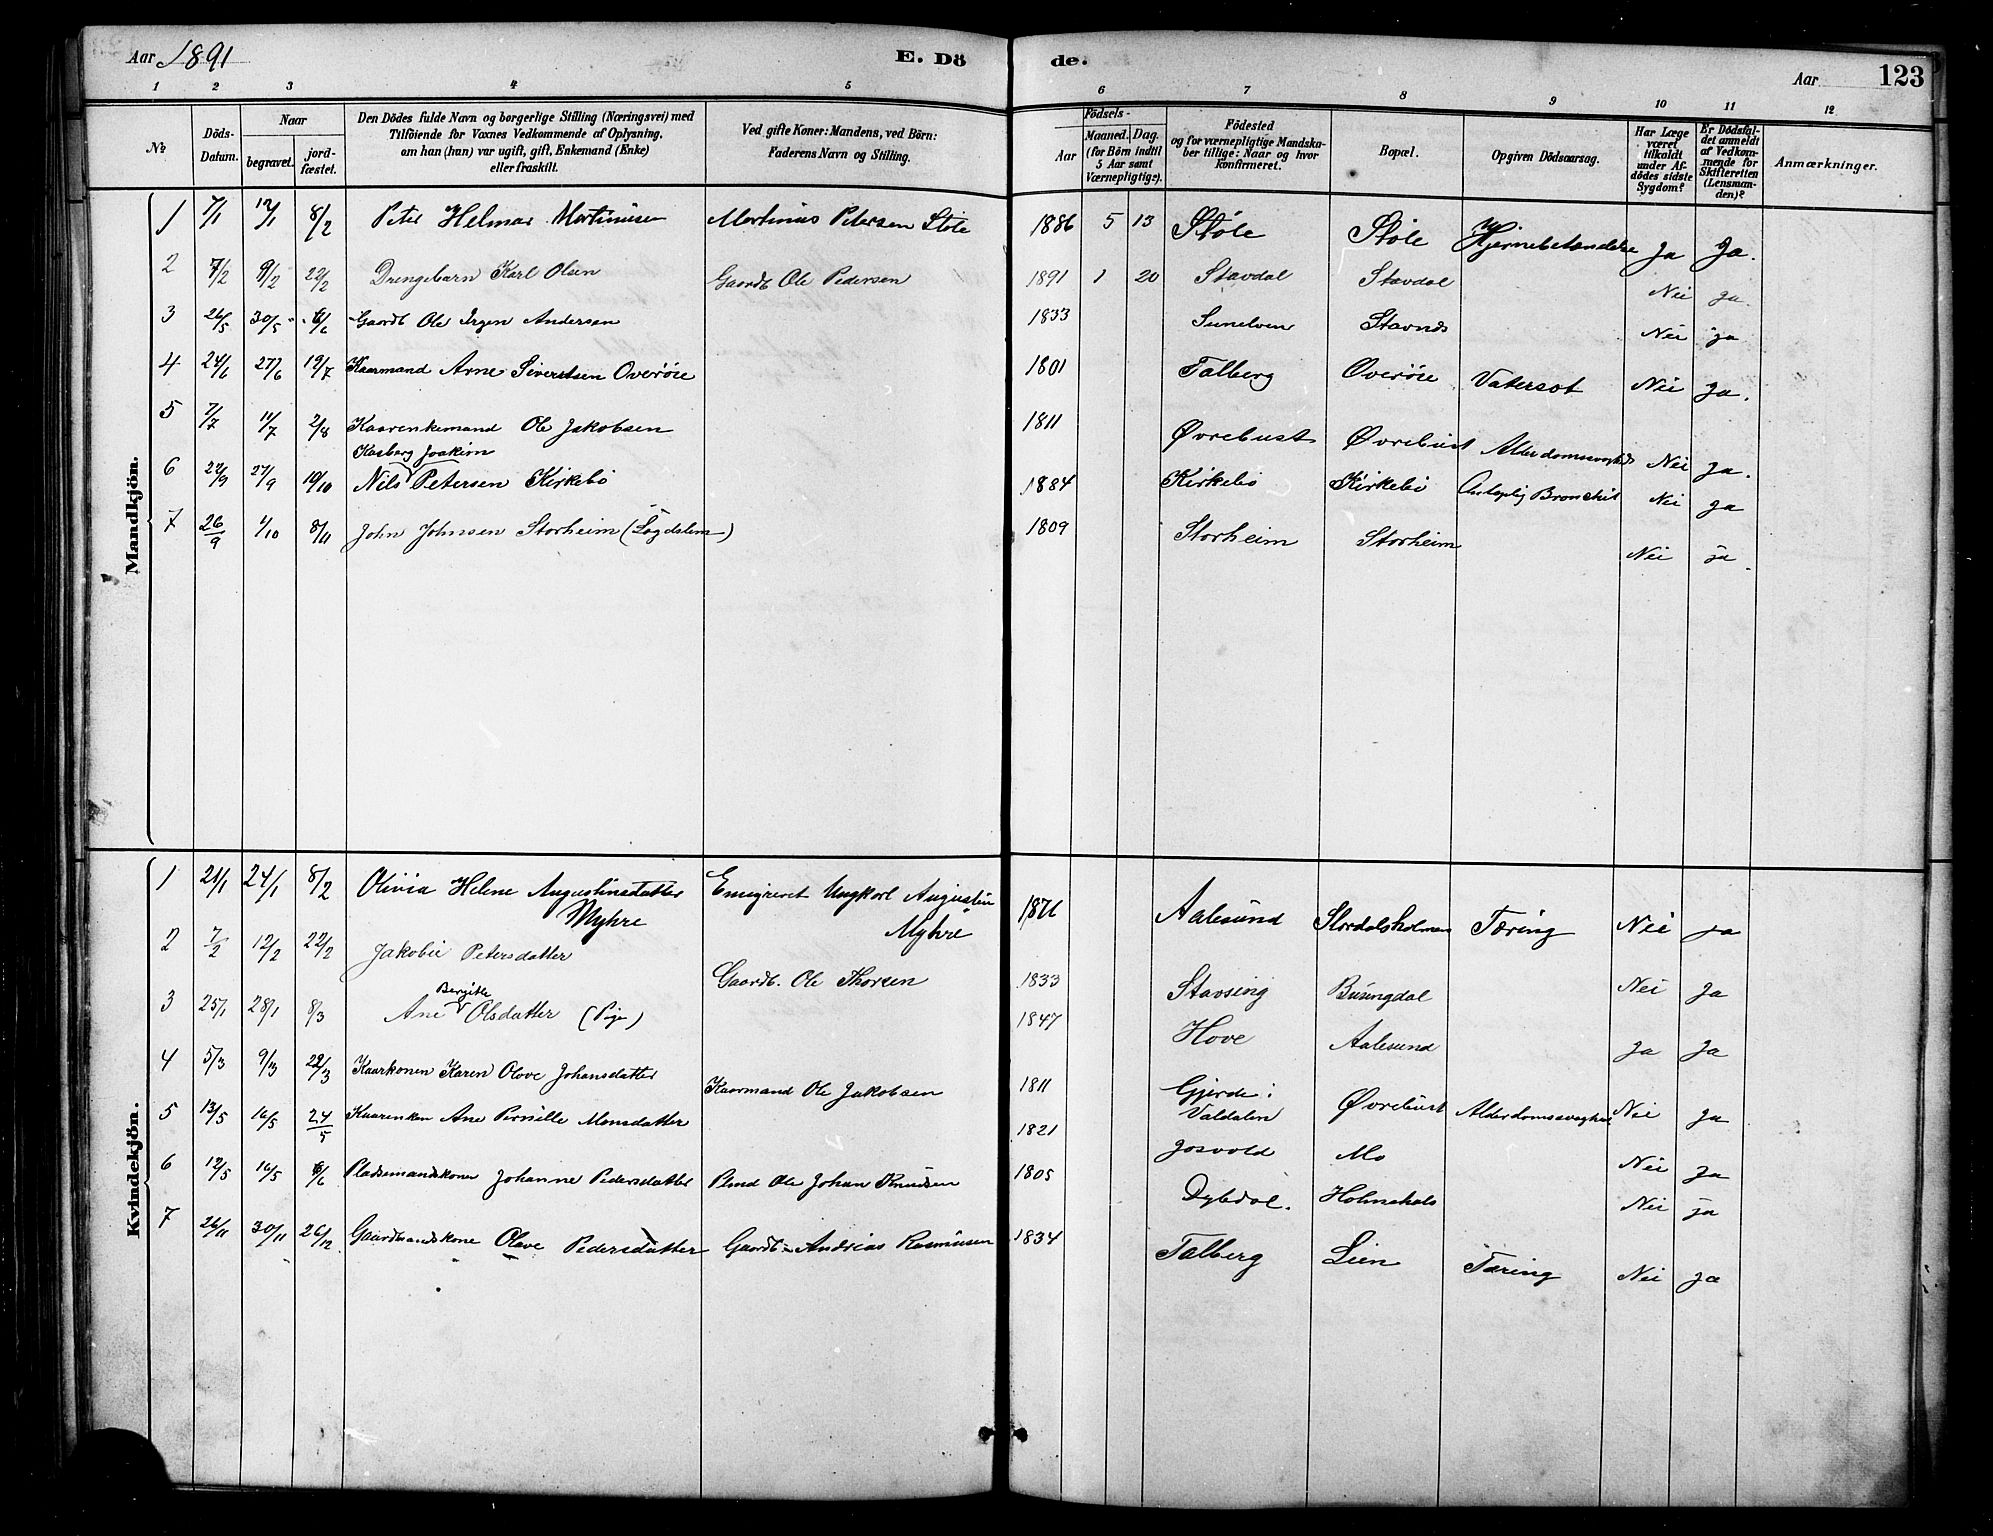 Aar 1891 E. Dö de. Aar 123
1 2 3 4 5 6 7 8 9 10 11 12
№ Döds-Datum. Naar begravet. jordfæstet. Den Dödes fulde Navn og borgerlige Stilling (Næringsvei) med Tilföiende for Voxnes Vedkommende af Oplysning, om han (hun) var ugift, gift, Enkemand (Enke) eller fraskilt. Ved gifte Koner: Mandens, ved Börn: Faderens Navn og Stilling. Födsels- Aar Maaned. Dag. (for Börn indtil 5 Aar samt Værnepligtige). Födested og for værnepligtige Mandskaber tillige: Naar og hvor konfirmeret. Bopæl. Opgiven Dödsaarsag. Har Læge været tilkaldt under Afdödes sidste Sygdom? Er Dödsfaldet anmeldt af Vedkommende for Skifteretten (Lensmanden)? Anmærkninger.
Mandkjön.
1 7/1 12/1 8/2 Peter Helmar Martinusen Martinus Petersen Støle 1886 5 13 Støle Støle Hjernebetændelse Ja Ja.
2 7/2 9/2 22/2 Drengebarn Karl Olsen Gaardb. Ole Pedersen 1891 1 20 Stavdal Stavdal Nei ja.
3 26/5 30/5 6/6 Gaardb Ole Jrgen Andersen 1833 Sunelven Stavnes Nei ja
4 24/6 27/6 19/7 Kaarmand Arne Sivertsen Overøie 1801 Talberg Overøie Vatersot Nei Ja.
5 7/7 11/7 2/8 Kaarenkemand Ole Jakobsen 1811 Øvrebust Øvrebust Alderdomssvaghed Nei Ja.
Kasberg Joakim
6 22/9 27/9 19/10 Nils Petersen Kirkebö 1884 Kirkebö Kirkebö Bronchit Nei Ja
7 26/9 1/10 8/11 John Johnsen Storheim (Løgdalem) 1809 Storheim Storheim Nei ja.
Kvindekjön.
1 21/1 24/1 8/2 Olivia Helene Augustinsdatter Myhre Emigreret Ungkarl Augustin Myhre 1876 Aalesund Stordalsholmen Tæring Nei ja
2 7/2 12/2 22/2 Jakobie Petersdatter Gaardb. Ole Thorsen 1833 Stavseng Busengdal Nei Ja
Bergitte
3 25/1 28/1 8/3 Ane Olsdatter (Pige) 1847 Hove Aalesund Ja Ja
4 5/3 9/3 22/3 Kaarkonen Karen Olave Johansdatter Kaarmand Ole Jakobsen 1811 Gjerde i Valdalen Øvrebust Alderdomssvaghed Nei Ja
5 13/5 16/5 24/5 Kaarenken Ane Pernille Monsdatter 1821 Josvold Mo Nei Ja
6 12/5 16/5 6/6 Pladsemandskone Johanne Pedersdatter Plmd Ole Johan Knudsen 1805 Dybdal. Holmehals Nei ja
7 26/11 30/11 26/12 Gaardmandskone Olave Pedersdatter Gaardb. Andreas Rasmusen 1834 Talberg Lien Tæring Nei ja